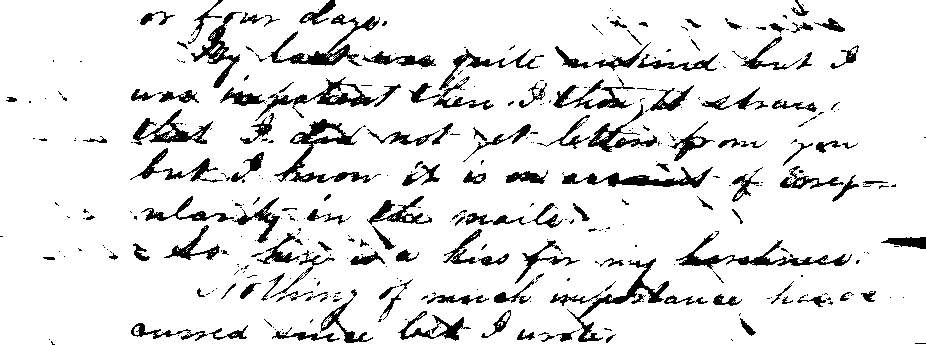 or four days.
My last was quite unkind but I
was impatient then. I thought strange
that I did not get letters from you
but I know it is on account of irreg-
ularity in the mails.
So here is a kiss for my harshness.
Nothing of much importance has oc
curred since last I wrote.